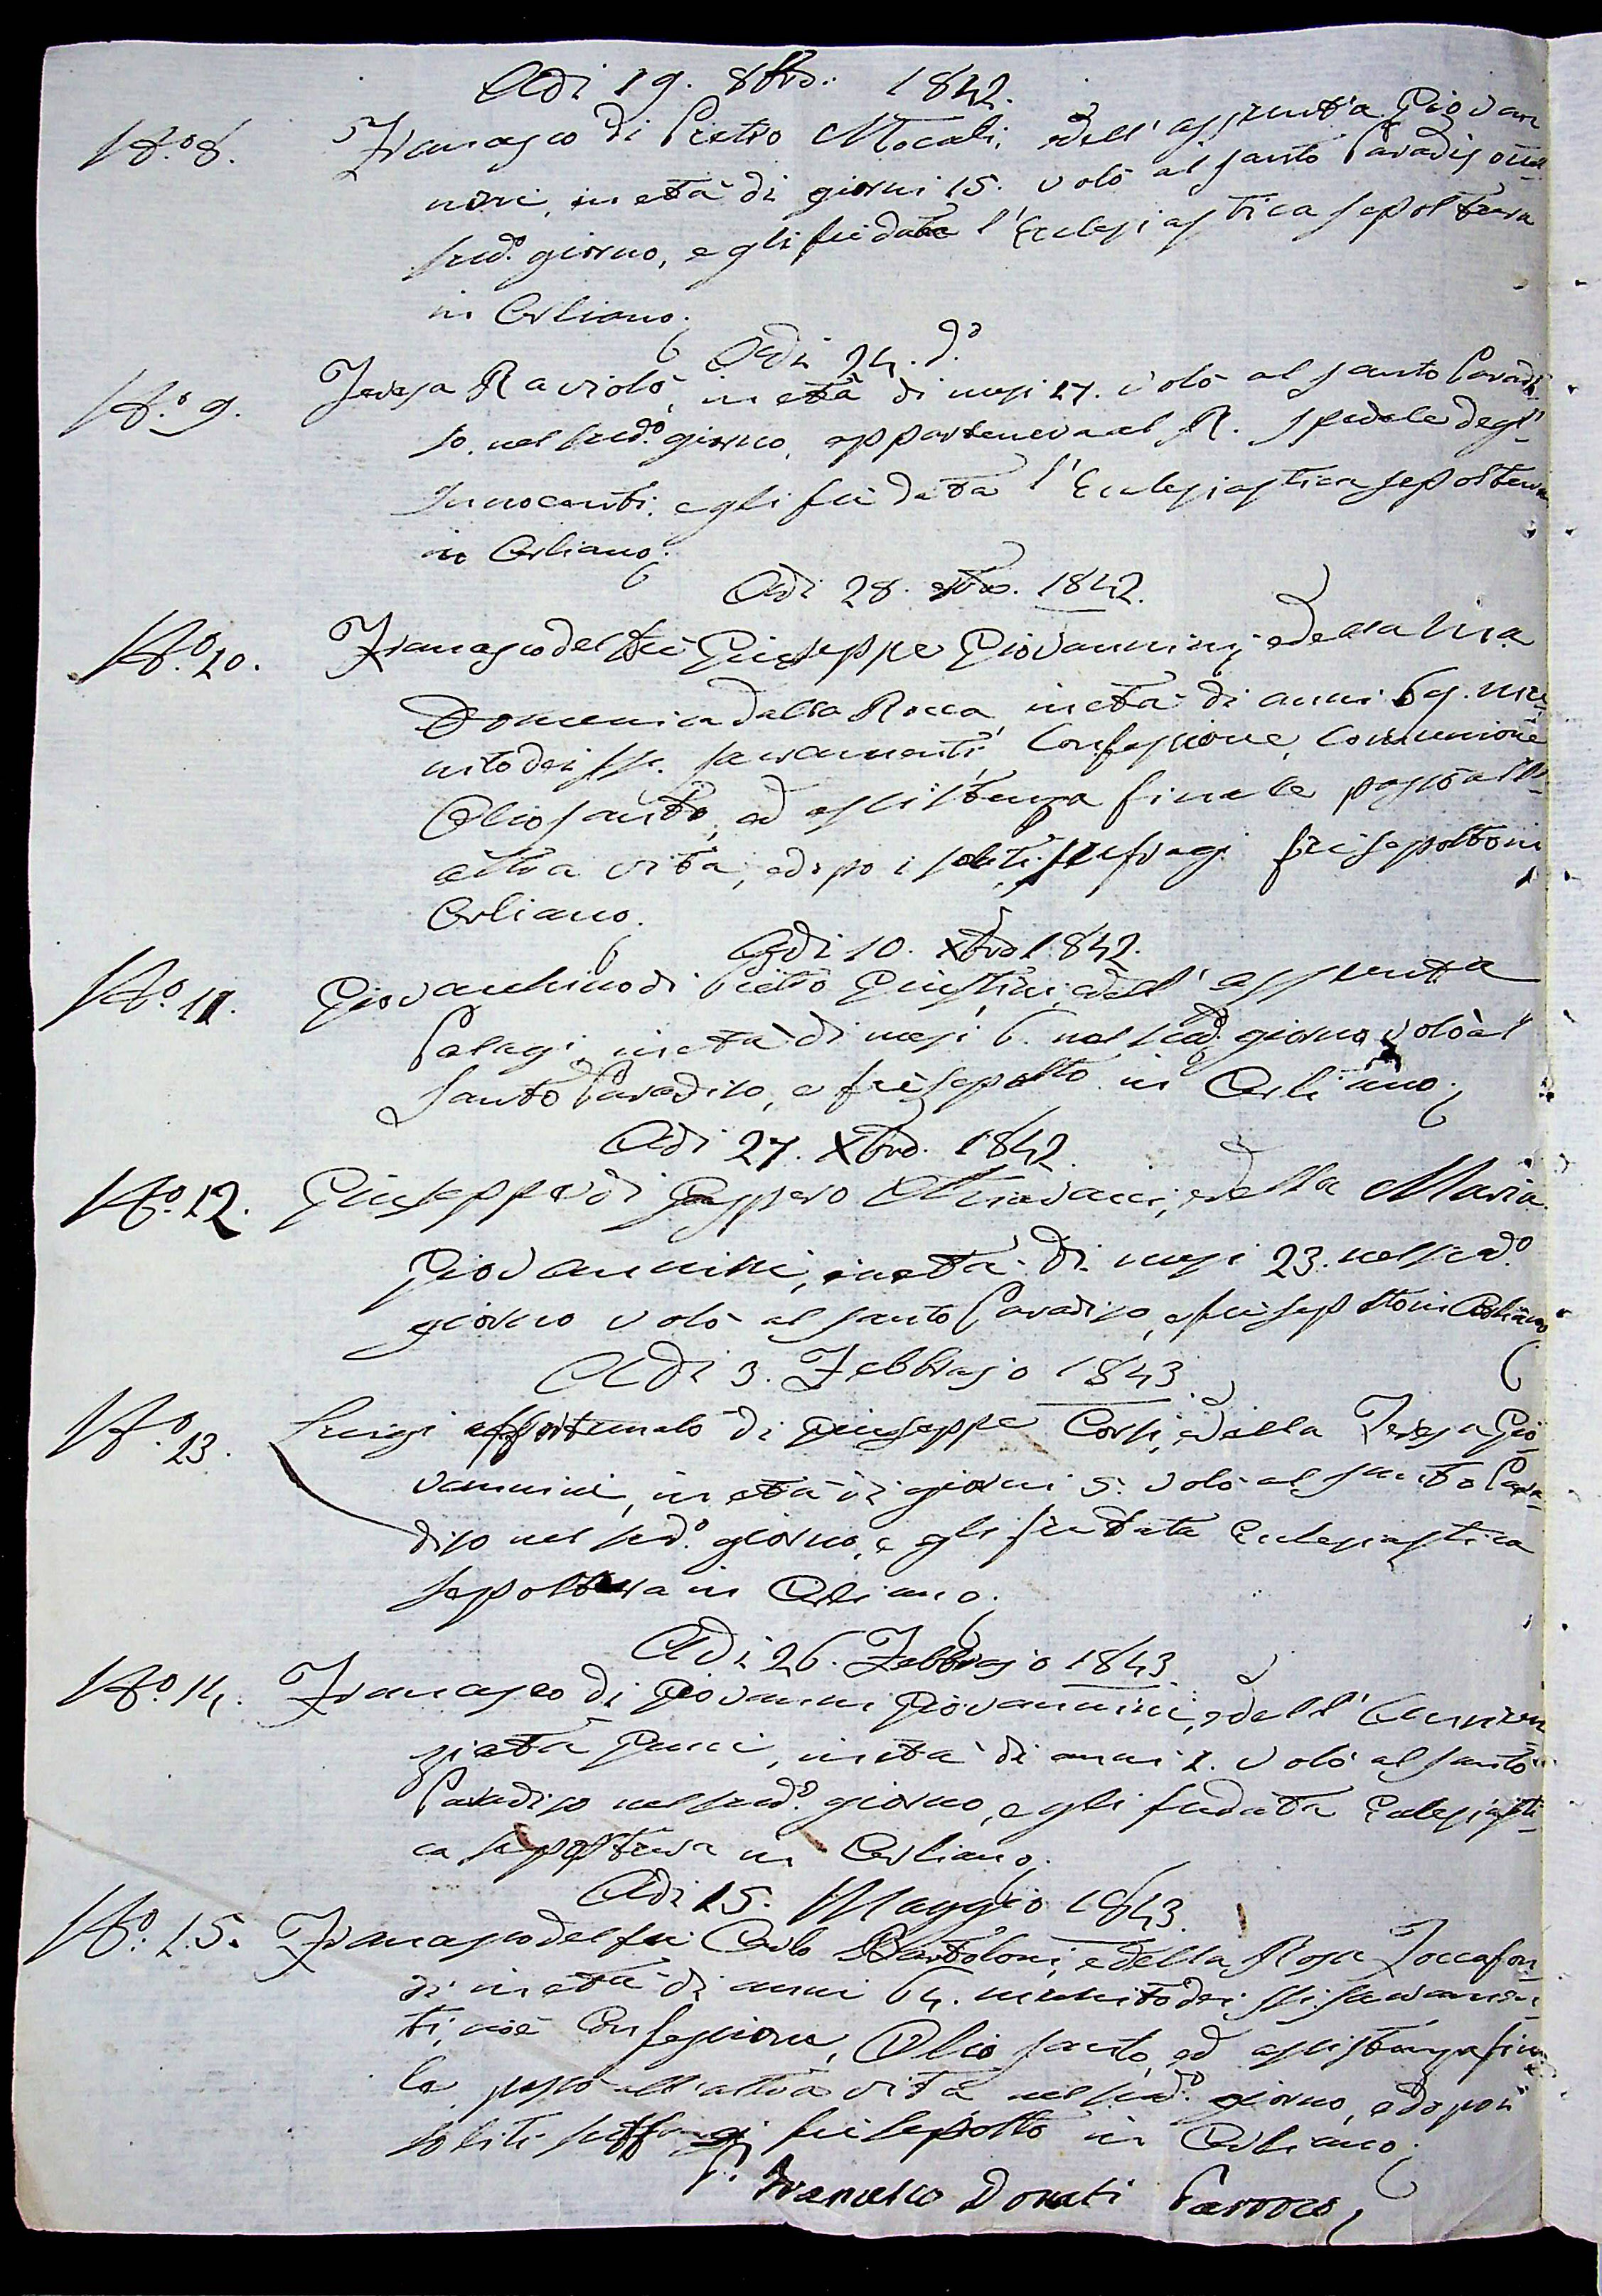 Adì 19. 8bre. 1842.
N.° 8. Francesco di Pietro Mocali, e dell'assunta Giovan
nini, in età di giorni 15. volò al santo Paradiso nel
sud.° giorno, e gli fù data l'Ecclesiastica sepoltura
in Orliano.
Adì 24. d.°
N.° 9. Teresa Raviolò, in età di mesi 27. volò al santo Paradi-
so, nel sud.° giorno, apparteneva al R. spedale degl'
Innocenti. e gli fù data l'Ecclesiastica sepoltura
in Orliano.
Adì 28. 1842.
N.° 10. Francesco del fù Giuseppe Giovannini, e della
Domenica dalla Rocca, in età di anni 69. mu-
nito dei SS. sacramenti, Confessione, Comunione
Olio santo, ed assistenza finale passò all'
altra vita, e dopo i soliti sufragi fù sepolto in
Orliano.
Adì 10. Xbre 1842.
N.° 11. Giovacchino di Pietro Giustini, e dell'assunta
Palagi, in età di mesi 6. nel sud. giorno volò al
Santo Paradiso, e fù sepolto in Orliano.
Adì 27. Xbre. 1842.
N.° 12. Giuseppe di Gaspero e della Maria
Giovannini, in età di mesi 23. nel sud.°
giorno volò al santo Paradiso, e fù sepolto in Orliano
Adì 3. Febbrajo 1843.
N.° 13. Luigi affortunato di Giuseppe Corsi, e della Teresa Gio-
vannini, in età di giorni 5. volò al santo Para-
diso nel sud.° giorno, e gli fù data Ecclesiastica
sepoltura in Orliano.
Adì 26. Febbrajo 1843.
N.° 14. Francesco di Giovanni Giovannini, e dell'Annun
ziata Pucci, in età di anni 2. volò al santo
Paradiso nel sud.° giorno, e gli fu data Eclesiasti-
ca sepoltura in Orliano.
Adì 15. Maggio 1843.
N.° 15. Francesco del fù Carlo Bartoloni, e della Rosa Toccafon
di in età di anni 64. munito dei SS. sacramen-
ti, cioè Confessione, Olio santo, ed assistenza fina
le, passò all'altra vita nel sud.° giorno, e dopo i
soliti suffragi fù sepolto in Orliano.
P. Francesco Donati Parroco